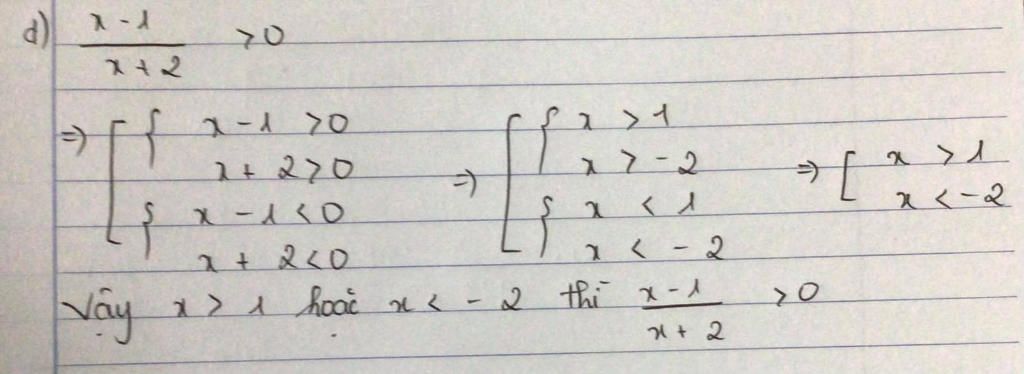 d) \frac{x-1}{x+2} > 0
=> [ { x - 1 > 0
x + 2 > 0
{ x - 1 < 0
x + 2 < 0
=> [ { x > 1
x > -2
{ x < 1
x < -2
=> [ x > 1
x < -2
Vậy x > 1 hoặc x < -2 thì \frac{x-1}{x+2} > 0